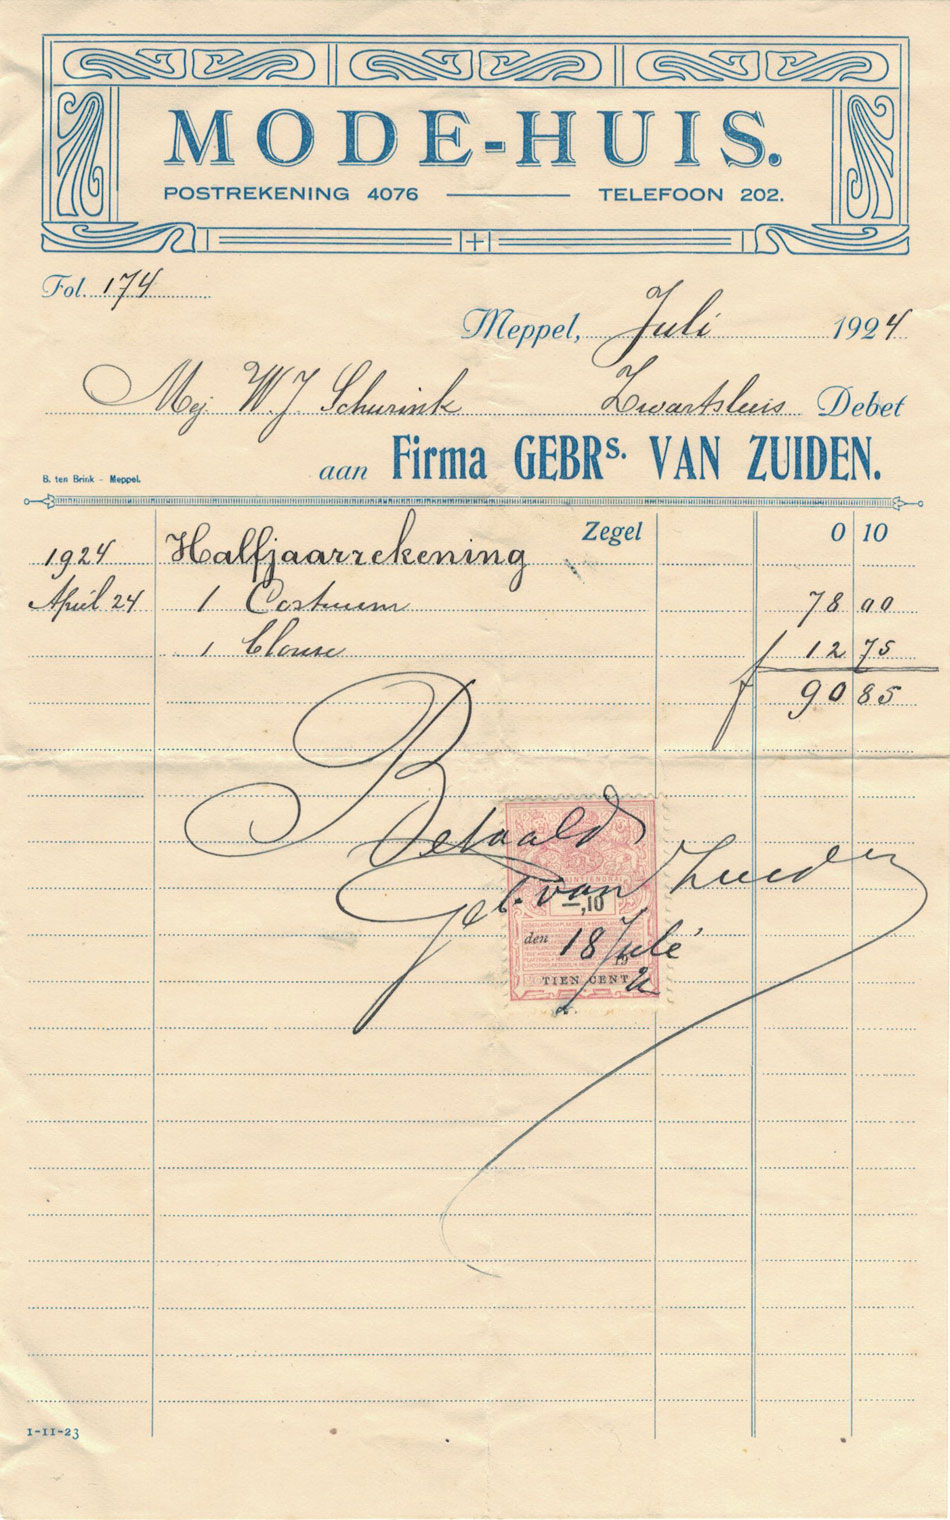 MODE-HUIS.
POSTREKENING 4076 TELEFOON 202.
Fol. 174
Meppel, Juli 1924
Mej. W.J Schurink Zwartsluis Debet
aan Firma GEBRs. VAN ZUIDEN.
B. ten Brink - Meppel.
Zegel 0 10
1924 Halfjaarrekening
April 24 1 Costuum 78 00
1 blouse f 12 75
f 90 85
Betaald
Geb. van Zuiden
,10
den 18 Juli
19 24
TIEN CENT
1-11-23